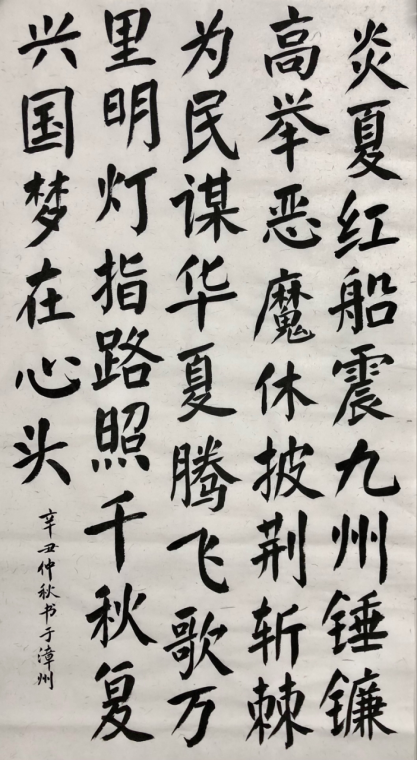 炎夏红船震九州锤镰
高举恶魔休披荆斩棘
为民谋华夏腾飞歌万
里明灯指路照千秋复
兴国梦在心头
辛丑仲秋书于漳州